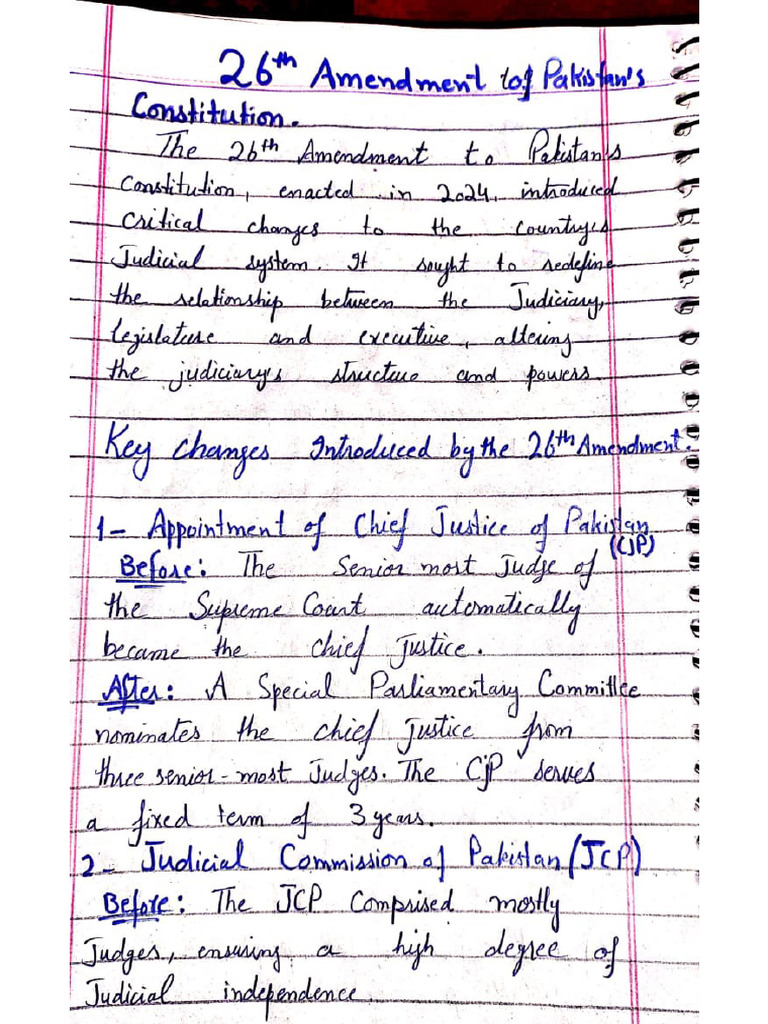 26th Amendment to of Pakistan's
Constitution.
The 26th Amendment to Pakistan's
Constitution, enacted in 2024, introduced
critical changes to the country's
Judicial system. It sought to redefine
the relationship between the Judiciary,
legislature and executive, altering
the judiciary's structure and powers
Key changes Introduced by the 26th Amendment.
1- Appointment of Chief Justice of Pakistan
(CJP)
Before: The Senior most Judge of
the Supreme Court automatically
became the chief Justice.
After: A Special Parliamentary Committee
nominates the chief Justice from
three senior-most Judges. The CJP serves
a fixed term of 3 years.
2- Judicial Commission of Pakistan (JCP)
Before: The JCP Comprised mostly
Judges, ensuring a high degree of
Judicial independence.